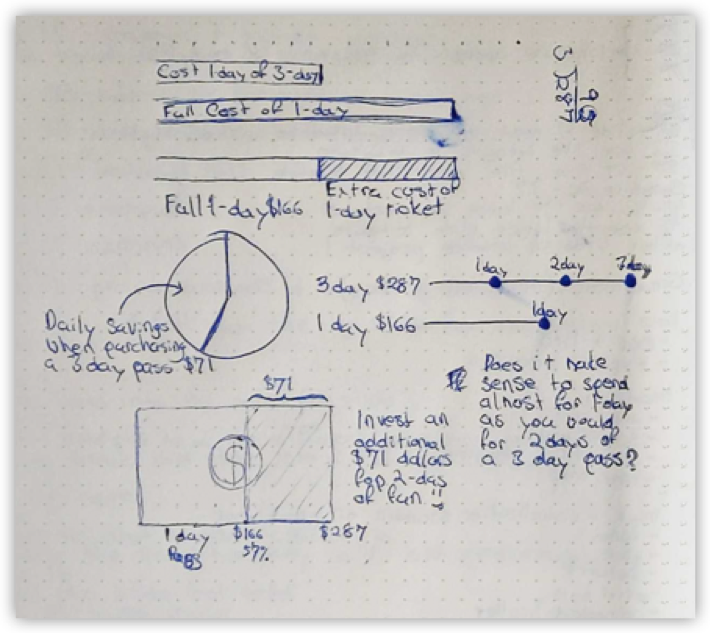 Cost 1 day of 3-day
Full Cost of 1-day
3 287
Extra cost of
1-day ticket
Full 1-day $166
Daily Savings
when purchasing
a 3 day pass $71
3 day $287
1 day 2 day 3 day
1 day $166
1 day
Does it make
sense to spend
almost for 1 day
as you would
for 2 days of
a 3 day pass?
$71
$
Invest an
additional
$71 dollars
for 2-days
of fun
1 day
$166
57%
$287